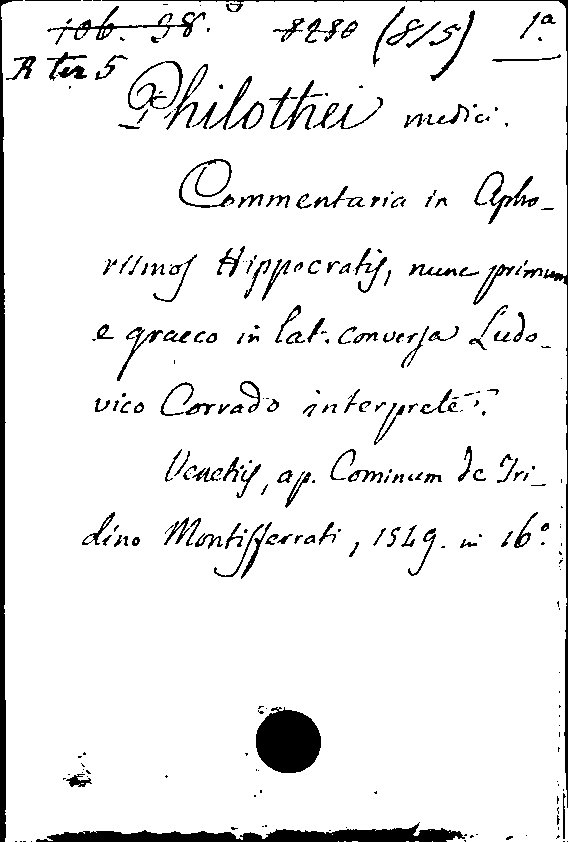 106. 98. 8280 (815) 1.a
R ter 5
Philothei medici.
Commentaria in Apho-
rismos Hippocratis, nunc primum
e graeco in lat. conversa Ludo-
vico Corrado interprete.
Venetiis, ap. Cominum de Tri-
dino Montisferrati, 1549. in 16.º